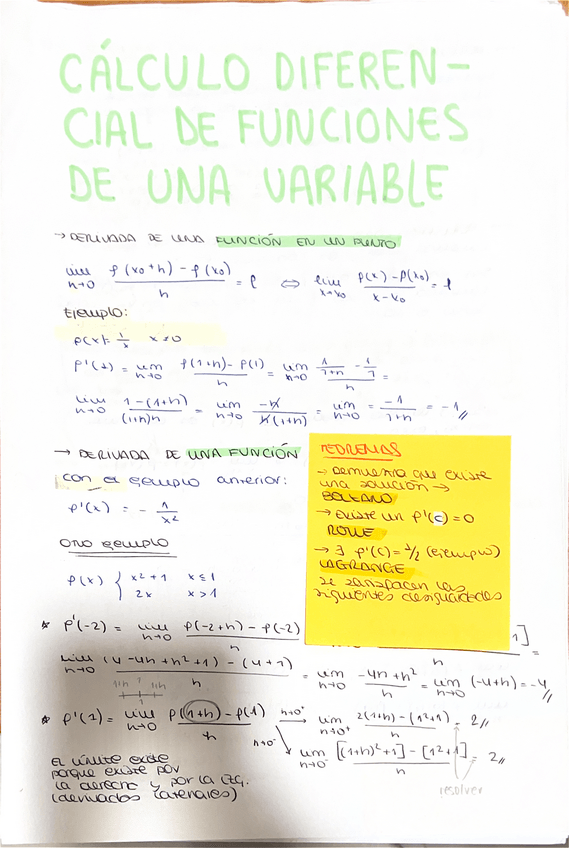 CÁLCULO DIFEREN-
CIAL DE FUNCIONES
DE UNA VARIABLE
→ DERIVADA DE UNA FUNCIÓN EN UN PUNTO
lim h→0 f(x₀+h) - f(x₀) / h = l ⇔ lim x→x₀ f(x) - f(x₀) / x - x₀ = l
Ejemplo:
f(x) = 1/x x≠0
f'(1) = lim h→0 f(1+h) - f(1) / h = lim h→0 1/1+h - 1/1 / h =
lim h→0 1-(1+h) / (1+h)h = lim h→0 -h / h(1+h) = lim h→0 = -1 / 1+h = -1 //
→ DERIVADA DE UNA FUNCIÓN
con el ejemplo anterior:
f'(x) = - 1/x²
Otro ejemplo
f(x) { x²+1 x ≤ 1
2x x > 1
TEOREMAS
→ Demuestra que existe
una solución →
BOLZANO
→ Existe un f'(c) = 0
ROLLE
→ ∃ f'(c) = 1/2 (ejemplo)
LAGRANGE
se satisfacen las
siguientes desigualdades
* f'(-2) = lim h→0 f(-2+h) - f(-2) / h
1] / h =
lim h→0 (4-4h+h²+1) - (4+1) / h = lim h→0 -4h+h² / h = lim h→0 (-4+h) = -4 //
1-h 1 1+h
* f'(1) = lim h→0 f(1+h) - f(1) / h h→0⁺ → lim h→0⁺ 2(1+h) - (1²+1) / h = 2 //
h→0⁻ lim h→0⁻ [(1+h)²+1] - [1²+1] / h = 2 //
El límite existe
porque existe por
la derecha y por la izq.
(derivadas laterales)
resolver